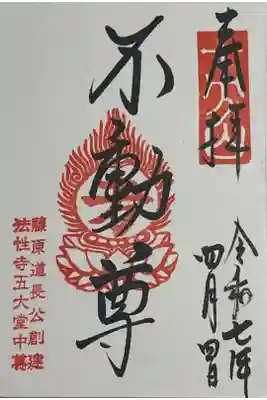 奉拝
令和七年
四月四日
不動尊
藤原道長公創建
法性寺五大堂中尊